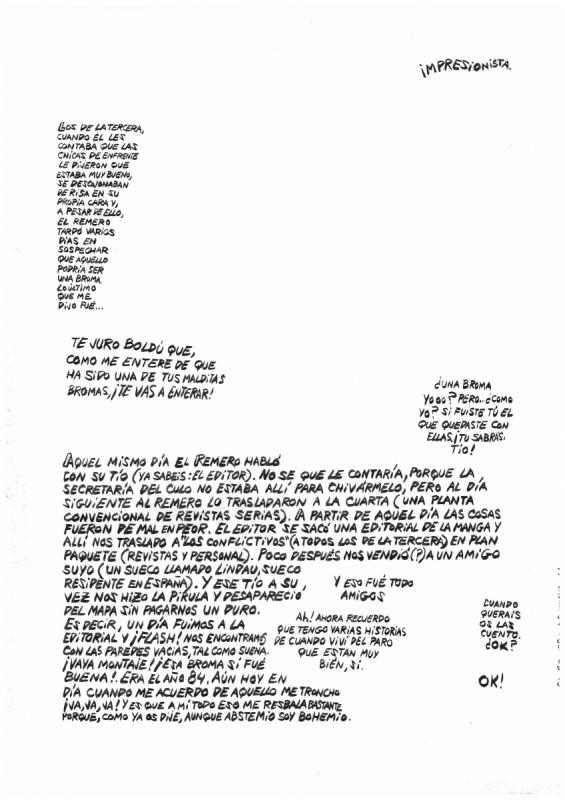 ¡MPRESIONISTA.
LOS DE LA TERCERA,
CUANDO ÉL LES
CONTABA QUE LAS
CHICAS DE ENFRENTE
LE DIJERON QUE
ESTABA MUY BUENO,
SE DESCOJONABAN
DE RISA EN SU
PROPIA CARA Y,
A PESAR DE ELLO,
EL REMERO
TARDÓ VARIOS
DÍAS EN
SOSPECHAR
QUE AQUELLO
PODRÍA SER
UNA BROMA.
LO ÚLTIMO
QUE ME
DIJO FUÉ...
TE JURO BOLDÚ QUE,
COMO ME ENTERE DE QUE
HA SIDO UNA DE TUS MALDITAS
BROMAS, ¡TE VAS A ENTERAR!
¿UNA BROMA
YOOO? PERO.. ¿CÓMO
YO? SI FUISTE TÚ EL
QUE QUEDASTE CON
ELLAS, ¡TU SABRÁS,
TÍO!
AQUEL MISMO DÍA EL REMERO HABLÓ
CON SU TÍO (YA SABEIS: EL EDITOR). NO SE QUE LE CONTARÍA, PORQUE LA
SECRETARIA DEL CULO NO ESTABA ALLÍ PARA CHIVÁRMELO, PERO AL DÍA
SIGUIENTE AL REMERO LO TRASLADARON A LA CUARTA (UNA PLANTA
CONVENCIONAL DE REVISTAS SERIAS). A PARTIR DE AQUEL DÍA LAS COSAS
FUERON DE MAL EN PEOR. EL EDITOR SE SACÓ UNA EDITORIAL DE LA MANGA Y
ALLÍ NOS TRASLADÓ A "LOS CONFLICTIVOS" (A TODOS LOS DE LA TERCERA) EN PLAN
PAQUETE (REVISTAS Y PERSONAL). POCO DESPUÉS NOS VENDIÓ (?) A UN AMIGO
SUYO (UN SUECO LLAMADO LINDAU, SUECO
RESIDENTE EN ESPAÑA). Y ESE TÍO A SU
VEZ NOS HIZO LA PIRULA Y DESAPARECIÓ
DEL MAPA SIN PAGARNOS UN DURO.
ES DECIR, UN DÍA FUIMOS A LA
EDITORIAL Y ¡FLASH! NOS ENCONTRAMOS
CON LAS PAREDES VACIAS, TAL COMO SUENA.
¡VAYA MONTAJE! ¡ESA BROMA SÍ FUÉ
BUENA!. ERA EL AÑO 84. AÚN HOY EN
DÍA CUANDO ME ACUERDO DE AQUELLO ME TRONCHO
¡VA, VA, VA! Y ES QUE A MÍ TODO ESO ME RESBALA BASTANTE
PORQUE, COMO YA OS DIJE, AUNQUE ABSTEMIO SOY BOHEMIO.
Y ESO FUÉ TODO
AMIGOS
AH! AHORA RECUERDO
QUE TENGO VARIAS HISTORIAS
DE CUANDO VIVÍ DEL PARO
QUE ESTAN MUY
BIÉN, SÍ.
CUANDO
QUERAIS
OS LAS
CUENTO.
¿OK?
OK!